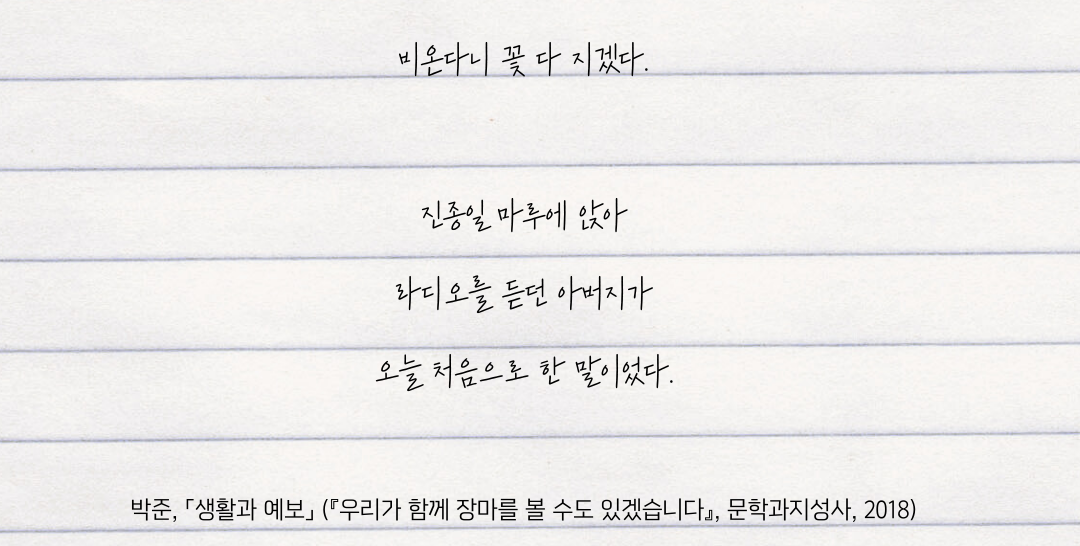 비온다니 꽃 다 지겠다.
진종일 마루에 앉아
라디오를 듣던 아버지가
오늘 처음으로 한 말이었다.
박준, 「생활과 예보」 (『우리가 함께 장마를 볼 수도 있겠습니다』, 문학과지성사, 2018)